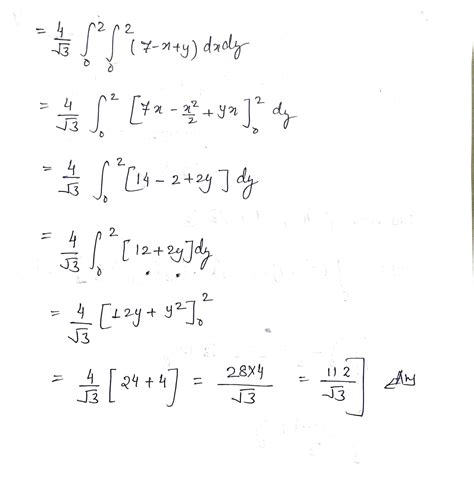 = 4/√3 ∫₀² ∫₀² (7-x+y) dxdy
= 4/√3 ∫₀² [7x - x²/2 + yx]₀² dy
= 4/√3 ∫₀² [14-2+2y] dy
= 4/√3 ∫₀² [12+2y] dy
= 4/√3 [12y + y²]₀²
= 4/√3 [24+4] = 28×4/√3 = 112/√3] Ans